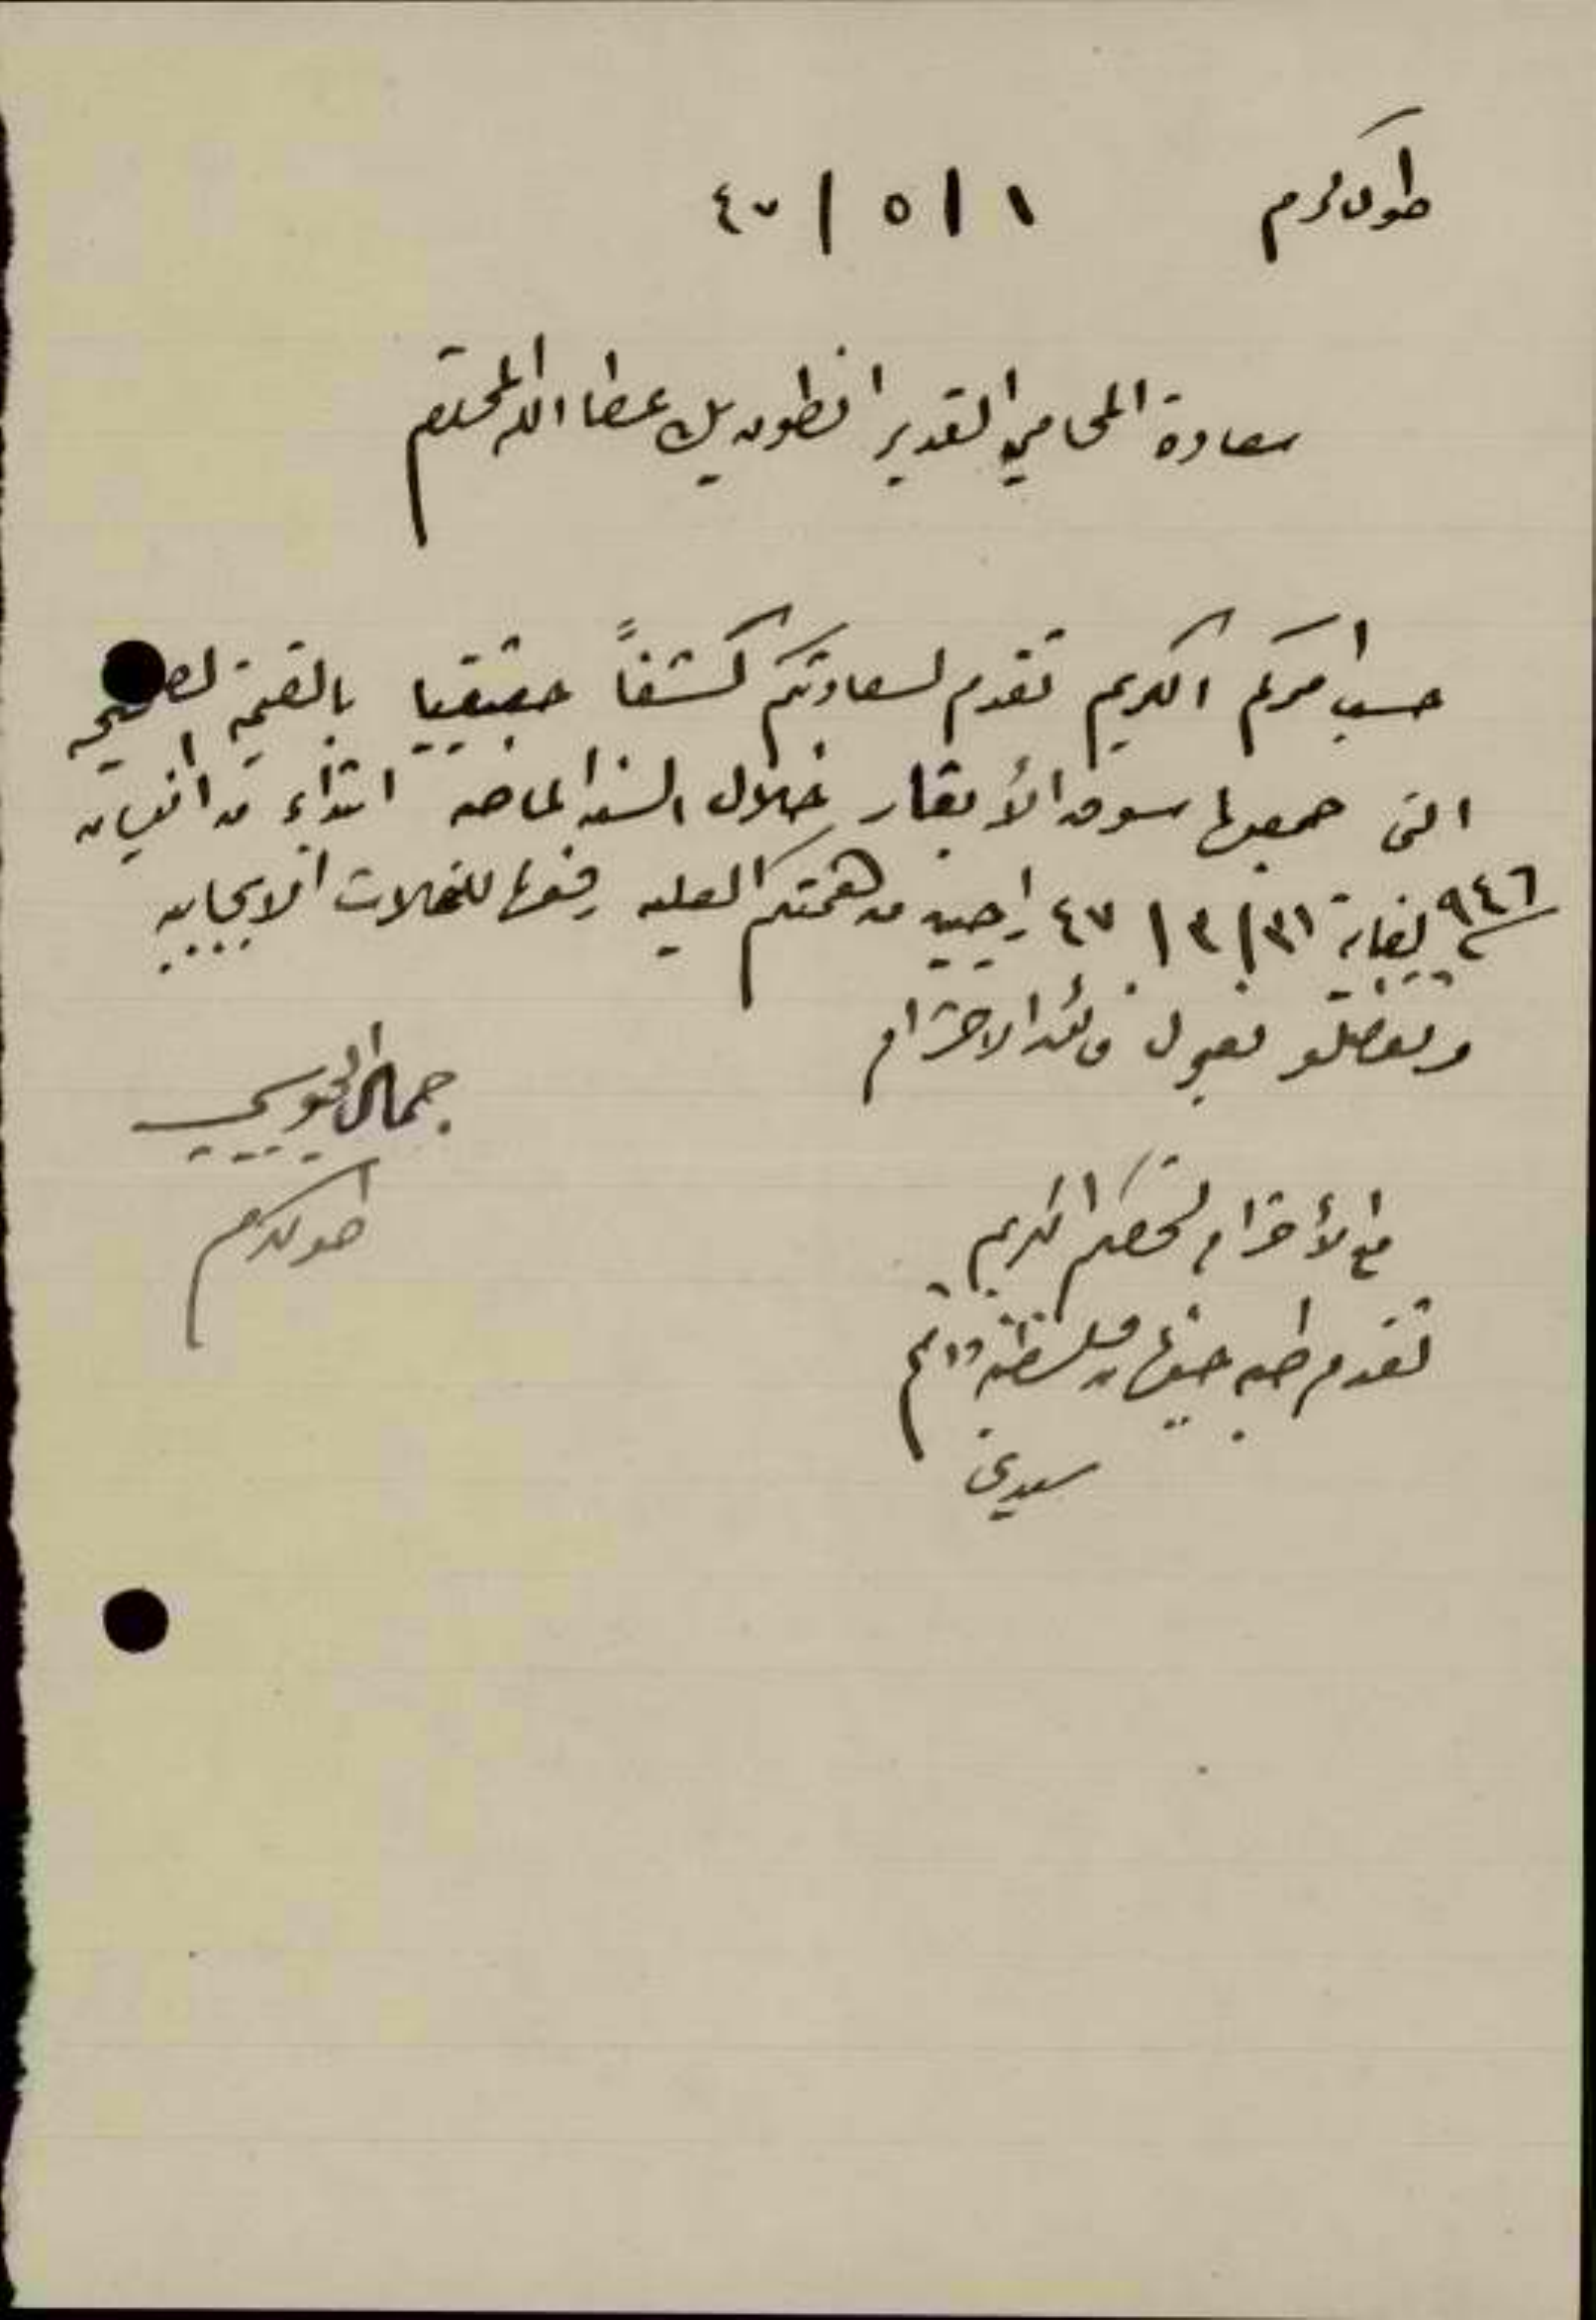 طولكرم ١ / ٥ / ٤٧
سعادة المحامي القدير انطون بك عطا الله المحترم
حسب امركم الكريم نقدم لسعادتكم كشفاً حقيقيا بالقيمة الصحيحه
التى جمعها سوق الأبقار خلال السنه الماضيه ابتداء من انيسان
٩٤٦ لغاية ٣١ / ٣ / ٤٧ راجين من همتكم العليه رفعها للمحلات الايجابيه
وتفضلو بقبول فائق الاحترام
جمال الجيوسي
طولكرم
مع الأحترام لشخصكم الكريم
نقدم طيه جنيهان فلسطينه ودمتم
سيدي